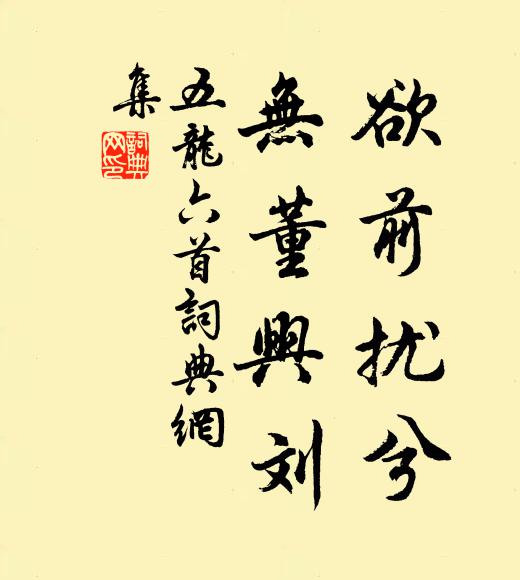 欲前扰兮
無董興刘
五龍六首詞典網
集
詞典
网印